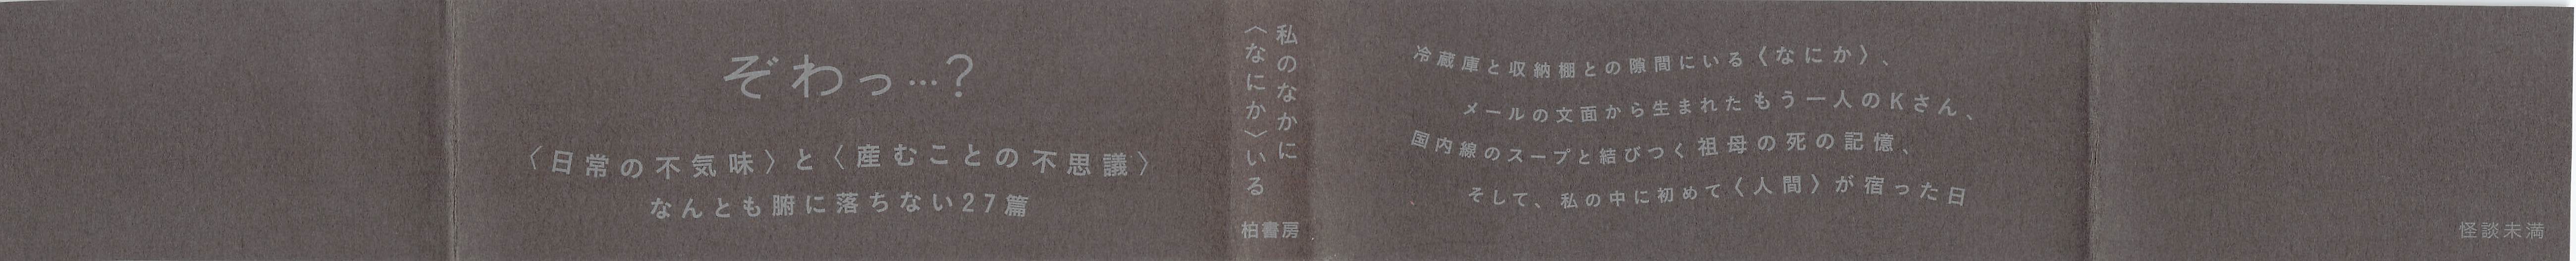 ぞわっ…?
〈日常の不気味〉と〈産むことの不思議〉
なんとも腑に落ちない27篇
私のなかに
〈なにか〉いる
柏書房
冷蔵庫と収納棚との隙間にいる〈なにか〉、
メールの文面から生まれたもう一人のKさん、
国内線のスープと結びつく祖母の死の記憶、
そして、私の中に初めて〈人間〉が宿った日
怪談未満